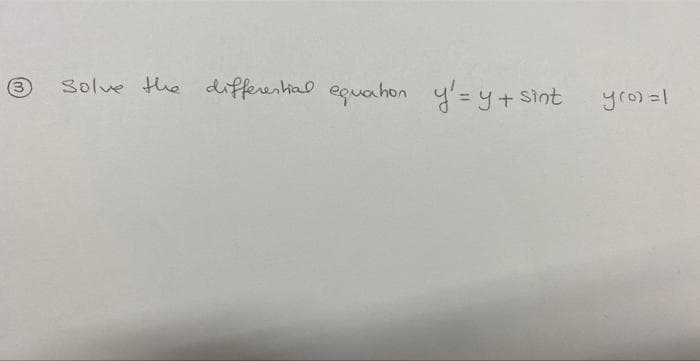 ③ Solve the differential equation y' = y + sint y(0) = 1